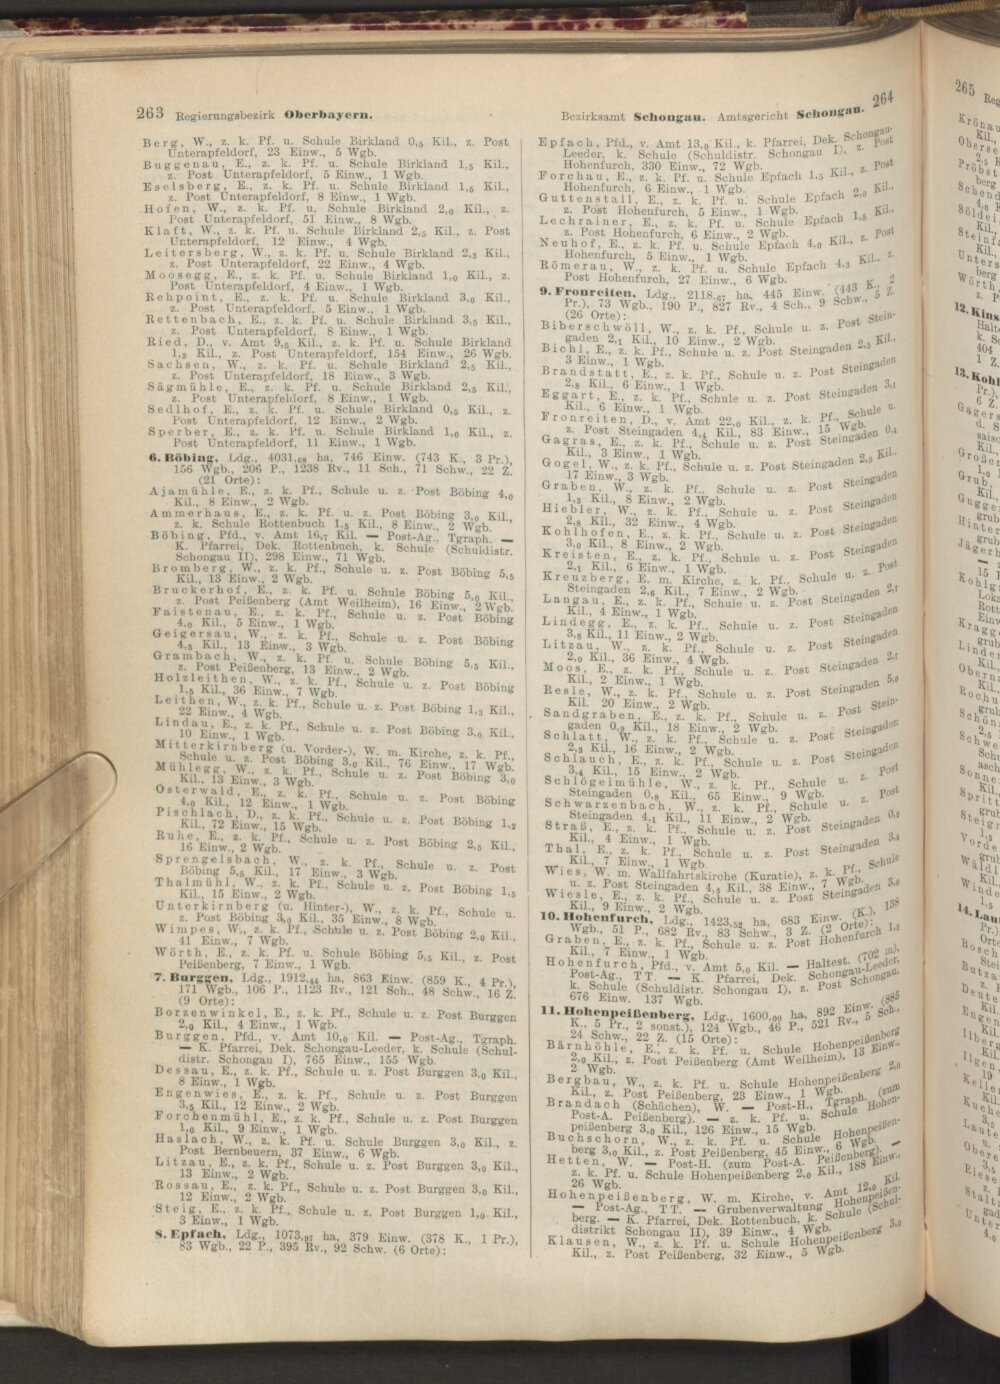 263 Regierungsbezirk Oberbayern.
Berg, W., z. k. Pf. u. Schule Birkland 0,5 Kil., z. Post
Unterapfeldorf, 23 Einw., 5 Wgb.
Buggenau, E., z. k. Pf. u. Schule Birkland 1,5 Kil.,
z. Post Unterapfeldorf, 5 Einw., 1 Wgb.
Eselsberg, E., z. k. Pf. u. Schule Birkland 1,5 Kil.,
z. Post Unterapfeldorf, 8 Einw., 1 Wgb.
Hofen, W., z. k. Pf. u. Schule Birkland 2,0 Kil., z.
Post Unterapfeldorf, 51 Einw., 8 Wgb.
Klaft, W., z. k. Pf. u. Schule Birkland 2,5 Kil., z. Post
Unterapfeldorf, 12 Einw., 4 Wgb.
Leitersberg, W., z. k. Pf. u. Schule Birkland 2,5 Kil.,
z. Post Unterapfeldorf, 22 Einw., 4 Wgb.
Moosegg, E., z. k. Pf. u. Schule Birkland 1,0 Kil., z.
Post Unterapfeldorf, 4 Einw., 1 Wgb.
Rehpoint, E., z. k. Pf. u. Schule Birkland 3,0 Kil.,
z. Post Unterapfeldorf, 5 Einw., 1 Wgb.
Rettenbach, E., z. k. Pf. u. Schule Birkland 3,5 Kil.,
z. Post Unterapfeldorf, 8 Einw., 1 Wgb.
Ried, D., v. Amt 9,5 Kil., z. k. Pf. u. Schule Birkland
1,3 Kil., z. Post Unterapfeldorf, 154 Einw., 26 Wgb.
Sachsen, W., z. k. Pf. u. Schule Birkland 2,5 Kil.,
z. Post Unterapfeldorf, 18 Einw., 3 Wgb.
Sägmühle, E., z. k. Pf. u. Schule Birkland 2,5 Kil.,
z. Post Unterapfeldorf, 8 Einw., 1 Wgb.
Sedlhof, E., z. k. Pf. u. Schule Birkland 0,5 Kil., z.
Post Unterapfeldorf, 12 Einw., 2 Wgb.
Sperber, E., z. k. Pf. u. Schule Birkland 1,0 Kil., z.
Post Unterapfeldorf, 11 Einw., 1 Wgb.
6. Böbing, Ldg., 4031,68 ha, 746 Einw. (743 K., 3 Pr.),
156 Wgb., 206 P., 1238 Rv., 11 Sch., 71 Schw., 22 Z.
(21 Orte):
Ajamühle, E., z. k. Pf., Schule u. z. Post Böbing 4,0
Kil., 8 Einw., 2 Wgb.
Ammerhaus, E., z. k. Pf. u. z. Post Böbing 3,0 Kil.,
z. k. Schule Rottenbuch 1,5 Kil., 8 Einw., 2 Wgb.
Böbing, Pfd., v. Amt 16,7 Kil. — Post-Ag., Tgraph. —
K. Pfarrei, Dek. Rottenbuch, k. Schule (Schuldistr.
Schongau II), 298 Einw., 71 Wgb.
Bromberg, W., z. k. Pf., Schule u. z. Post Böbing 5,5
Kil., 13 Einw., 2 Wgb.
Bruckerhof, E., z. k. Pf. u. Schule Böbing 5,0 Kil.,
z. Post Peißenberg (Amt Weilheim), 16 Einw., 2 Wgb.
Faistenau, E., z. k. Pf., Schule u. z. Post Böbing
4,0 Kil., 5 Einw., 1 Wgb.
Geigersau, W., z. k. Pf., Schule u. z. Post Böbing
4,5 Kil., 13 Einw., 3 Wgb.
Grambach, W., z. k. Pf. u. Schule Böbing 5,5 Kil.,
z. Post Peißenberg, 13 Einw., 2 Wgb.
Holzleithen, W., z. k. Pf., Schule u. z. Post Böbing
1,5 Kil., 36 Einw., 7 Wgb.
Leithen, W., z. k. Pf., Schule u. z. Post Böbing 1,3 Kil.,
22 Einw., 4 Wgb.
Lindau, E., z. k. Pf., Schule u. z. Post Böbing 3,0 Kil.,
10 Einw., 1 Wgb.
Mitterkirnberg (u. Vorder-), W. m. Kirche, z. k. Pf.,
Schule u. z. Post Böbing 3,0 Kil., 76 Einw., 17 Wgb.
Mühlegg, W., z. k. Pf., Schule u. z. Post Böbing 3,0
Kil., 13 Einw., 3 Wgb.
Osterwald, E., z. k. Pf., Schule u. z. Post Böbing
4,0 Kil., 12 Einw., 1 Wgb.
Pischlach, D., z. k. Pf., Schule u. z. Post Böbing 1,2
Kil., 72 Einw., 15 Wgb.
Ruhe, E., z. k. Pf., Schule u. z. Post Böbing 2,5 Kil.,
16 Einw., 2 Wgb.
Sprengelsbach, W., z. k. Pf., Schule u. z. Post
Böbing 5,5 Kil., 17 Einw., 3 Wgb.
Thalmühl, W., z. k. Pf., Schule u. z. Post Böbing 1,5
Kil., 15 Einw., 2 Wgb.
Unterkirnberg (u. Hinter-), W., z. k. Pf., Schule u.
z. Post Böbing 3,0 Kil., 35 Einw., 8 Wgb.
Wimpes, W., z. k. Pf., Schule u. z. Post Böbing 2,0 Kil.,
41 Einw., 7 Wgb.
Wörth, E., z. k. Pf. u. Schule Böbing 5,5 Kil., z. Post
Peißenberg, 7 Einw., 1 Wgb.
7. Burggen, Ldg., 1912,44 ha, 863 Einw. (859 K., 4 Pr.),
171 Wgb., 106 P., 1123 Rv., 121 Sch., 48 Schw., 16 Z.
(9 Orte):
Borzenwinkel, E., z. k. Pf., Schule u. z. Post Burggen
2,0 Kil., 4 Einw., 1 Wgb.
Burggen, Pfd., v. Amt 10,0 Kil. — Post-Ag., Tgraph.
— K. Pfarrei, Dek. Schongau-Leeder, k. Schule (Schul-
distr. Schongau I), 765 Einw., 155 Wgb.
Dessau, E., z. k. Pf., Schule u. z. Post Burggen 3,0 Kil.,
8 Einw., 1 Wgb.
Engenwies, E., z. k. Pf., Schule u. z. Post Burggen
3,5 Kil., 12 Einw., 2 Wgb.
Forchenmühl, E., z. k. Pf., Schule u. z. Post Burggen
1,0 Kil., 9 Einw., 1 Wgb.
Haslach, W., z. k. Pf. u. Schule Burggen 3,0 Kil., z.
Post Bernbeuern, 37 Einw., 6 Wgb.
Litzau, E., z. k. Pf., Schule u. z. Post Burggen 3,0 Kil.,
13 Einw., 2 Wgb.
Rossau, E., z. k. Pf., Schule u. z. Post Burggen 3,0 Kil.,
12 Einw., 2 Wgb.
Steig, E., z. k. Pf., Schule u. z. Post Burggen 1,0 Kil.,
3 Einw., 1 Wgb.
8. Epfach, Ldg., 1073,97 ha, 379 Einw. (378 K., 1 Pr.),
83 Wgb., 22 P., 395 Rv., 92 Schw. (6 Orte):
Bezirksamt Schongau. Amtsgericht Schongau. 264
Epfach, Pfd., v. Amt 13,0 Kil., k. Pfarrei, Dek. Schongau-
Leeder, k. Schule (Schuldistr. Schongau I), z. Post
Hohenfurch, 330 Einw., 72 Wgb.
Forchau, E., z. k. Pf. u. Schule Epfach 1,5 Kil., z. Post
Hohenfurch, 6 Einw., 1 Wgb.
Guttenstall, E., z. k. Pf. u. Schule Epfach 2,0 Kil.,
z. Post Hohenfurch, 5 Einw., 1 Wgb.
Lechrainer, E., z. k. Pf. u. Schule Epfach 1,5 Kil.,
z. Post Hohenfurch, 6 Einw., 2 Wgb.
Neuhof, E., z. k. Pf. u. Schule Epfach 4,0 Kil., z. Post
Hohenfurch, 5 Einw., 1 Wgb.
Römerau, W., z. k. Pf. u. Schule Epfach 4,3 Kil., z.
Post Hohenfurch, 27 Einw., 6 Wgb.
9. Fronreiten, Ldg., 2118,67 ha, 445 Einw. (443 K., 2
Pr.), 73 Wgb., 190 P., 827 Rv., 4 Sch., 9 Schw., 5 Z.
(26 Orte):
Biberschwöll, W., z. k. Pf., Schule u. z. Post Stein-
gaden 2,1 Kil., 10 Einw., 2 Wgb.
Bichl, E., z. k. Pf., Schule u. z. Post Steingaden 2,5 Kil.,
3 Einw., 1 Wgb.
Brandstatt, E., z. k. Pf., Schule u. z. Post Steingaden
2,8 Kil., 6 Einw., 1 Wgb.
Eggart, E., z. k. Pf., Schule u. z. Post Steingaden 3,1
Kil., 6 Einw., 1 Wgb.
Fronreiten, D., v. Amt 22,0 Kil., z. k. Pf., Schule u.
z. Post Steingaden 4,4 Kil., 83 Einw., 15 Wgb.
Gagras, E., z. k. Pf., Schule u. z. Post Steingaden 0,4
Kil., 3 Einw., 1 Wgb.
Gogel, W., z. k. Pf., Schule u. z. Post Steingaden 2,5 Kil.,
17 Einw., 3 Wgb.
Graben, W., z. k. Pf., Schule u. z. Post Steingaden
1,3 Kil., 8 Einw., 2 Wgb.
Hiebler, W., z. k. Pf., Schule u. z. Post Steingaden
2,8 Kil., 32 Einw., 4 Wgb.
Kohlhofen, E., z. k. Pf., Schule u. z. Post Steingaden
3,0 Kil., 8 Einw., 2 Wgb.
Kreisten, E., z. k. Pf., Schule u. z. Post Steingaden
2,1 Kil., 6 Einw., 1 Wgb.
Kreuzberg, E. m. Kirche, z. k. Pf., Schule u. z. Post
Steingaden 2,6 Kil., 7 Einw., 2 Wgb.
Langau, E., z. k. Pf., Schule u. z. Post Steingaden 2,7
Kil., 4 Einw., 1 Wgb.
Lindegg, E., z. k. Pf., Schule u. z. Post Steingaden
3,8 Kil., 11 Einw., 2 Wgb.
Litzau, W., z. k. Pf., Schule u. z. Post Steingaden
2,0 Kil., 36 Einw., 4 Wgb.
Moos, E., z. k. Pf., Schule u. z. Post Steingaden 2,7
Kil., 2 Einw., 1 Wgb.
Resle, W., z. k. Pf., Schule u. z. Post Steingaden 5,0
Kil. 20 Einw., 2 Wgb.
Sandgraben, E., z. k. Pf., Schule u. z. Post Stein-
gaden 0,9 Kil., 18 Einw., 2 Wgb.
Schlatt, W., z. k. Pf., Schule u. z. Post Steingaden
2,3 Kil., 16 Einw., 2 Wgb.
Schlauch, E., z. k. Pf., Schule u. z. Post Steingaden
3,4 Kil., 15 Einw., 2 Wgb.
Schlögelmühle, W., z. k. Pf., Schule u. z. Post
Steingaden 0,8 Kil., 65 Einw., 9 Wgb.
Schwarzenbach, W., z. k. Pf., Schule u. z. Post
Steingaden 4,1 Kil., 11 Einw., 2 Wgb.
Straß, E., z. k. Pf., Schule u. z. Post Steingaden 0,2
Kil., 4 Einw., 1 Wgb.
Thal, E., z. k. Pf., Schule u. z. Post Steingaden 3,4
Kil., 7 Einw., 1 Wgb.
Wies, W. m. Wallfahrtskirche (Kuratie), z. k. Pf., Schule
u. z. Post Steingaden 4,3 Kil., 38 Einw., 7 Wgb.
Wiesle, E., z. k. Pf., Schule u. z. Post Steingaden 3,0
Kil., 9 Einw., 2 Wgb.
10. Hohenfurch, Ldg., 1423,52 ha, 683 Einw. (K.), 138
Wgb., 51 P., 682 Rv., 83 Schw., 3 Z. (2 Orte):
Graben, E., z. k. Pf., Schule u. z. Post Hohenfurch 1,5
Kil., 7 Einw., 1 Wgb.
Hohenfurch, Pfd., v. Amt 5,0 Kil. — Haltest. (702 m),
Post-Ag., TT. — K. Pfarrei, Dek. Schongau-Leeder,
k. Schule (Schuldistr. Schongau I), z. Post Schongau,
676 Einw. 137 Wgb.
11. Hohenpeißenberg, Ldg., 1600,00 ha, 892 Einw. (885
K., 5 Pr., 2 sonst.), 124 Wgb., 46 P., 521 Rv., 5 Sch.,
24 Schw., 22 Z. (15 Orte):
Bärnhöhle, E., z. k. Pf. u. Schule Hohenpeißenberg
2,0 Kil., z. Post Peißenberg (Amt Weilheim), 13 Einw.,
2 Wgb.
Bergbau, W., z. k. Pf. u. Schule Hohenpeißenberg 2,0
Kil., z. Post Peißenberg, 23 Einw., 1 Wgb.
Brandach (Schächen), W. — Post-H., Tgraph. (zum
Post-A. Peißenberg). — z. k. Pf. u. Schule Hohen-
peißenberg 3,0 Kil., 126 Einw., 15 Wgb.
Buchschorn, W., z. k. Pf. u. Schule Hohenpeißen-
berg 3,0 Kil., z. Post Peißenberg, 45 Einw., 6 Wgb.
Hetten, W. — Post-H. (zum Post-A. Peißenberg). —
z. k. Pf. u. Schule Hohenpeißenberg 2,0 Kil., 188 Einw.,
26 Wgb.
Hohenpeißenberg, W. m. Kirche, v. Amt 12,0 Kil.
— Post-Ag., TT. — Grubenverwaltung Hohenpeißen-
berg. — K. Pfarrei, Dek. Rottenbuch, k. Schule (Schul-
distrikt Schongau II), 39 Einw., 4 Wgb.
Klausen, W., z. k. Pf. u. Schule Hohenpeißenberg 3,0
Kil., z. Post Peißenberg, 32 Einw., 5 Wgb.
265
12. Kins
13. Kohl
14. Lau